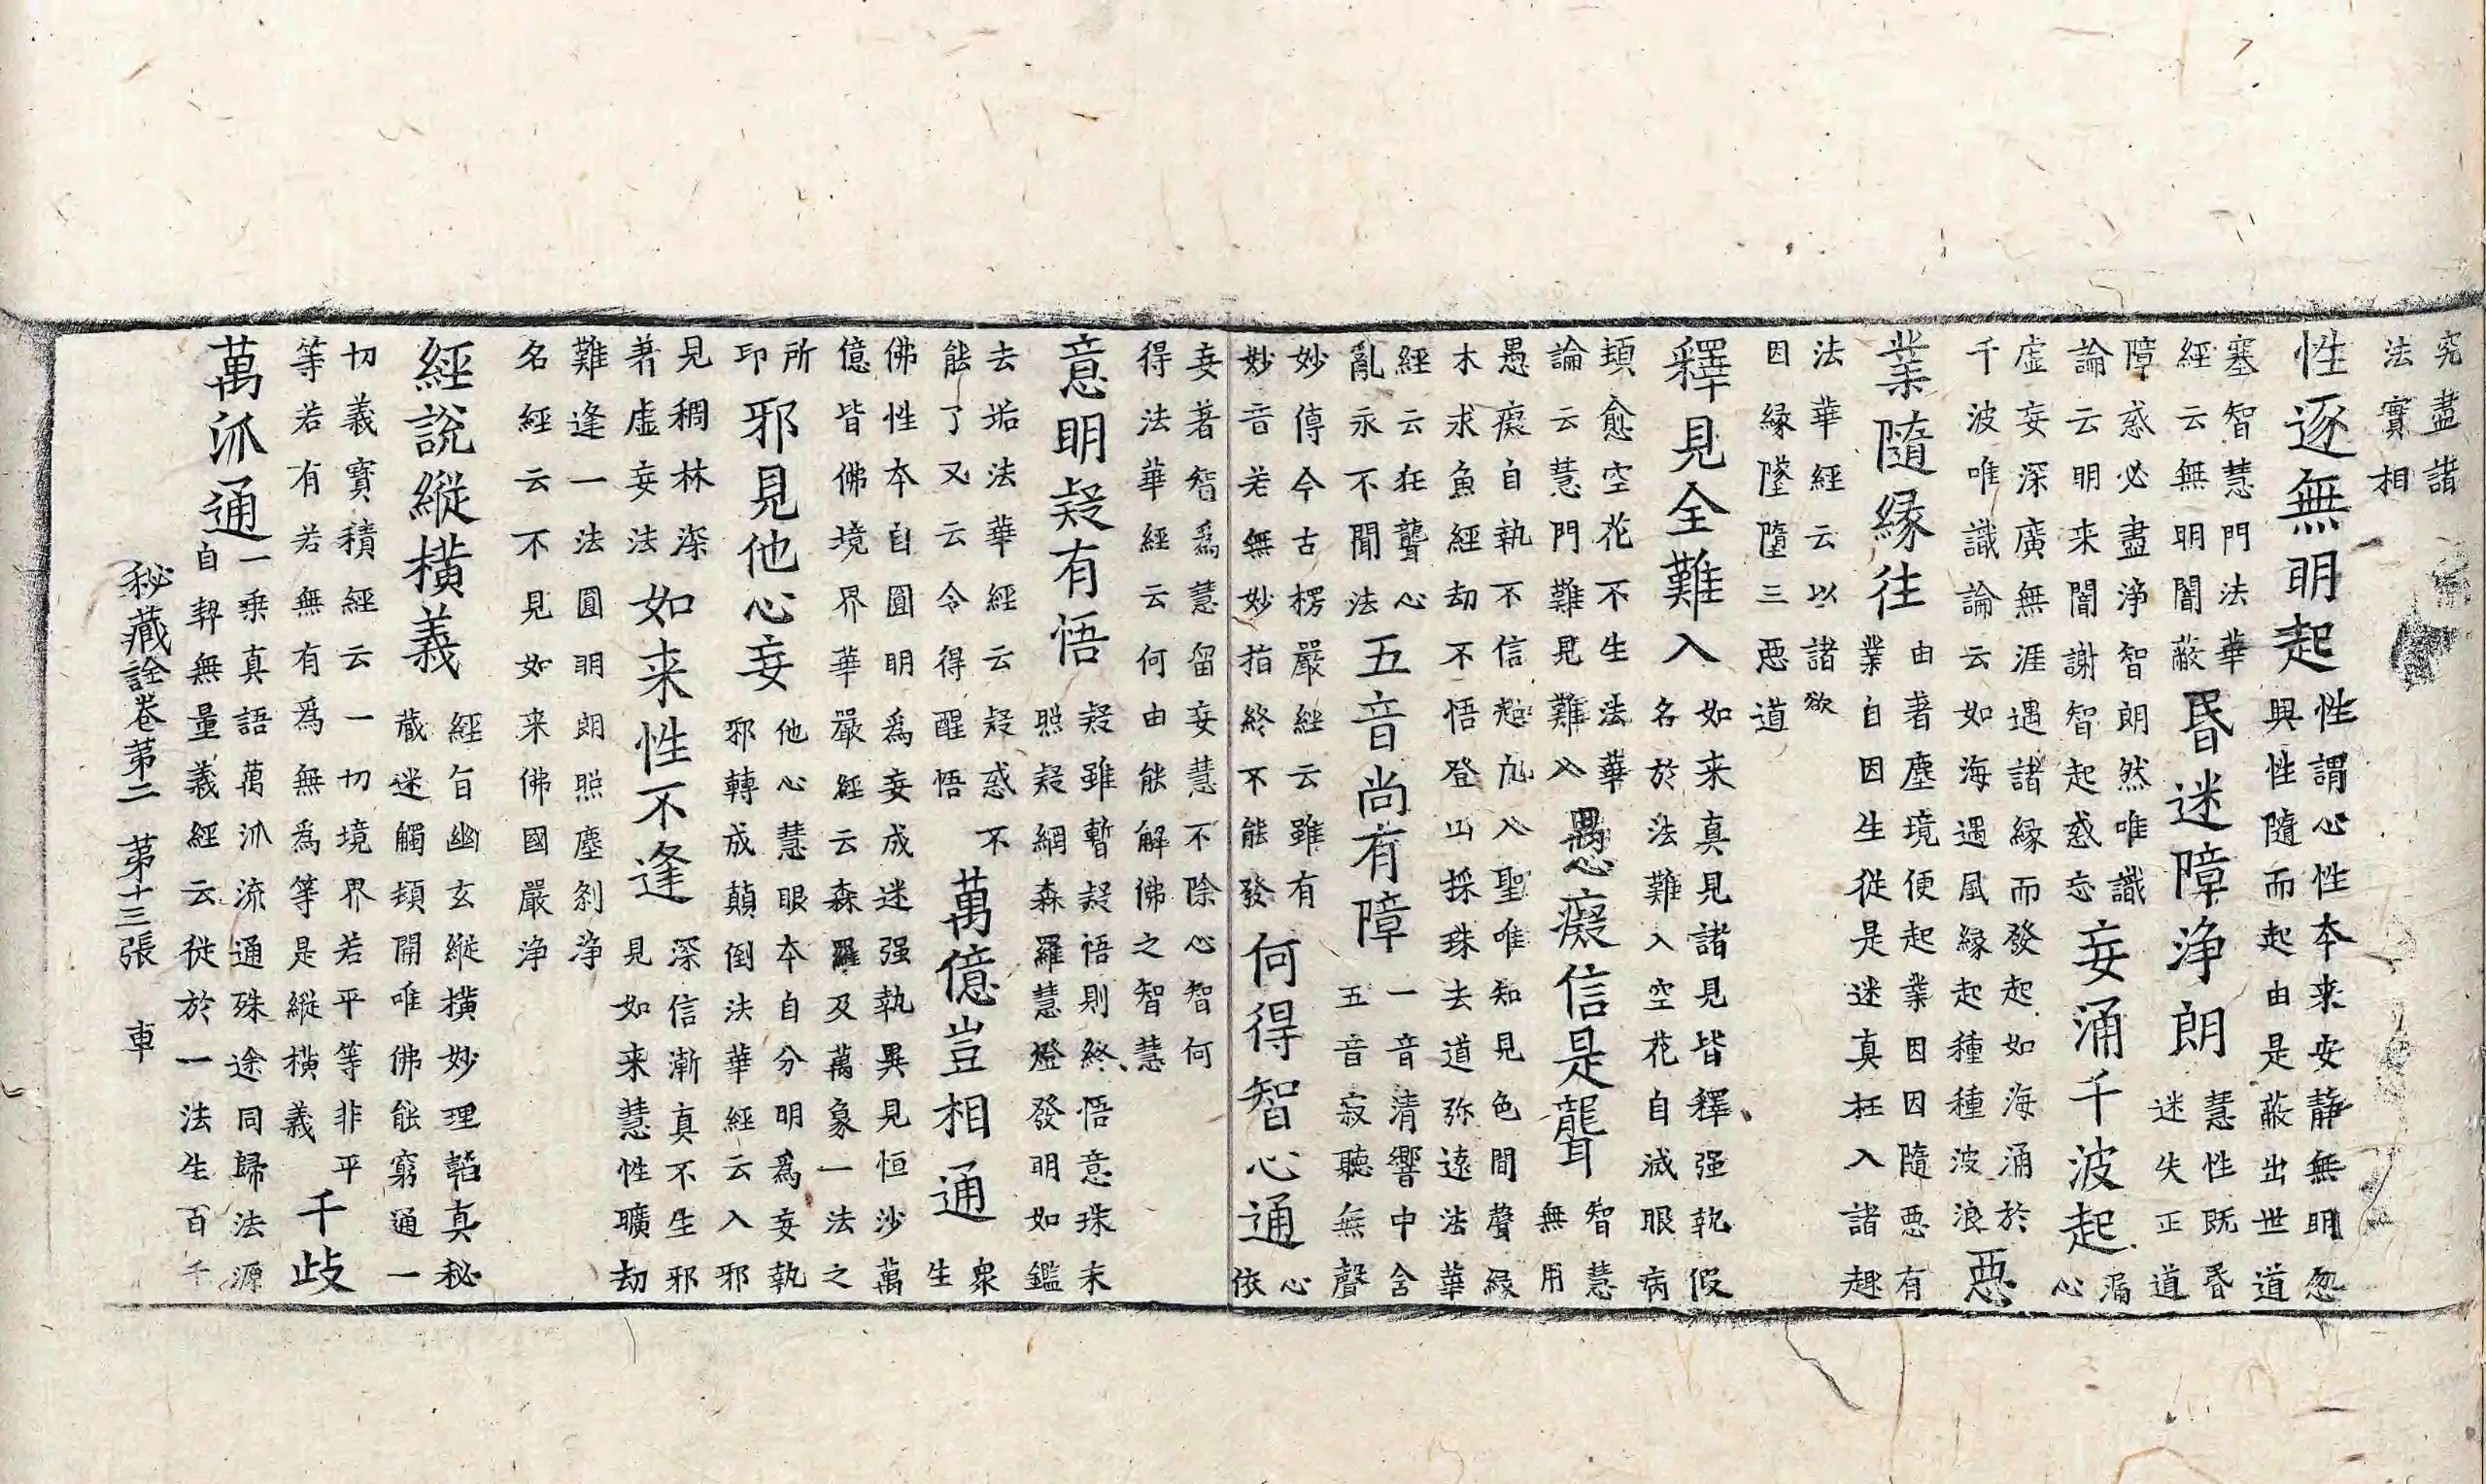 究盡諸
法實相
性逐無明起
性謂心性本来安靜無明忽
興性隨而起由是蔽出世道
塞智慧門法華
經云無明闇蔽
昏迷障浄朗
慧性既昏
迷失正道
障惑必盡浄智朗然唯識
論云明来闇謝智起惑忘
妄涌千波起
漏
心
虛妄深廣無涯遇諸緣而發起如海涌於
千波唯識論云如海遇風緣起種種波浪
惡
業隨緣往
由著塵境便起業因因隨惡有
業自因生從是迷真枉入諸趣
法華經云以諸欲
因緣墜墮三惡道
釋見全難入
如来真見諸見皆釋强執假
名於法難入空花自滅眼病
頓愈空花不生法華
論云慧門難見難入
愚癡信是聾
智慧
無用
愚癡自執不信越凢入聖唯知見色聞聲緣
木求魚經劫不悟登山採珠去道弥遠法華
經云狂聾心
亂永不聞法
五音尚有障
一音清響中含
五音寂聽無聲
妙傳今古楞嚴經云雖有
妙音若無妙指終不能發
何得智心通
心
依
妄著智爲慧留妄慧不除心智何
得法華經云何由能解佛之智慧
意明疑有悟
疑雖暫疑悟則終悟意珠末
照疑網森羅慧燈發明如鑑
去垢法華經云疑惑不
能了又云令得醒悟
萬億豈相通
衆
生
佛性本自圓明爲妄成迷强執異見恒沙萬
億皆佛境界華嚴經云森羅及萬象一法之
所
印
邪見他心妄
他心慧眼本自分明爲妄執
邪轉成顛倒法華經云入邪
見稠林深
著虛妄法
如来性不逢
深信漸真不生邪
見如来慧性曠劫
難逢一法圓明朗照塵刹浄
名經云不見如来佛國嚴浄
經說縱橫義
經旨幽玄縱橫妙理韜真秘
藏迷觸頓開唯佛能窮通一
切義寶積經云一切境界若平等非平
等若有若無有爲無爲等是縱橫義
千歧
萬派通
一乘真語萬派流通殊途同歸法源
自契無量義經云從於一法生百千
秘藏詮卷第二 第十三張 車